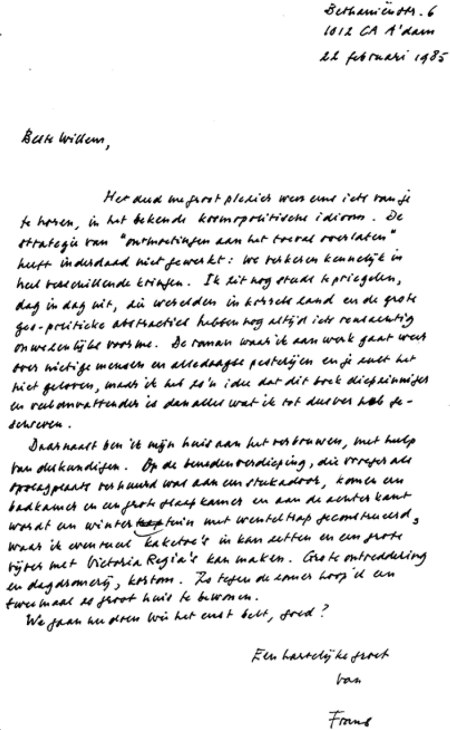 Bethaniënstr. 6
1012 CA A'dam
22 februari 1985
Beste Willem,
Het deed me groot plezier weer eens iets van je
te horen, in het bekende kosmopolitische idioom. De
strategie van "ontmoetingen aan het toeval overlaten"
heeft inderdaad niet gewerkt: we verkeren kennelijk in
heel verschillende kringen. Ik zit nog steeds te priegelen,
dag in dag uit, die werelden in korsels land en de grote
geo-politieke abstracties hebben nog altijd iets reusachtig
onwezenlijks voor me. De roman waar ik aan werk gaat weer
over nietige mensen en alledaagse pesterijen en je zult het
niet geloven, maar ik heb zo'n idee dat dit boek diepzinniger
en veelomvattender is dan alles wat ik tot dusver heb ge-
schreven.
Daarnaast ben ik mijn huis aan het verbouwen, met hulp
van deskundigen. Op de benedenverdieping, die vroeger als
opslagplaats verhuurd was aan een stukadoor, komen een
badkamer en een grote slaapkamer en aan de achterkant
wordt een wintertuin met wenteltrap geconstrueerd,
waar ik eventueel kaketoe's in kan zetten en een grote
vijver met Victoria Regia's kan maken. Grote ontreddering
en dagdromerij, kortom. Zo tegen de zomer hoop ik een
tweemaal zo groot huis te bewonen.
We gaan nu doen wie het eerst belt, goed?
Een hartelijke groet
van
Frans